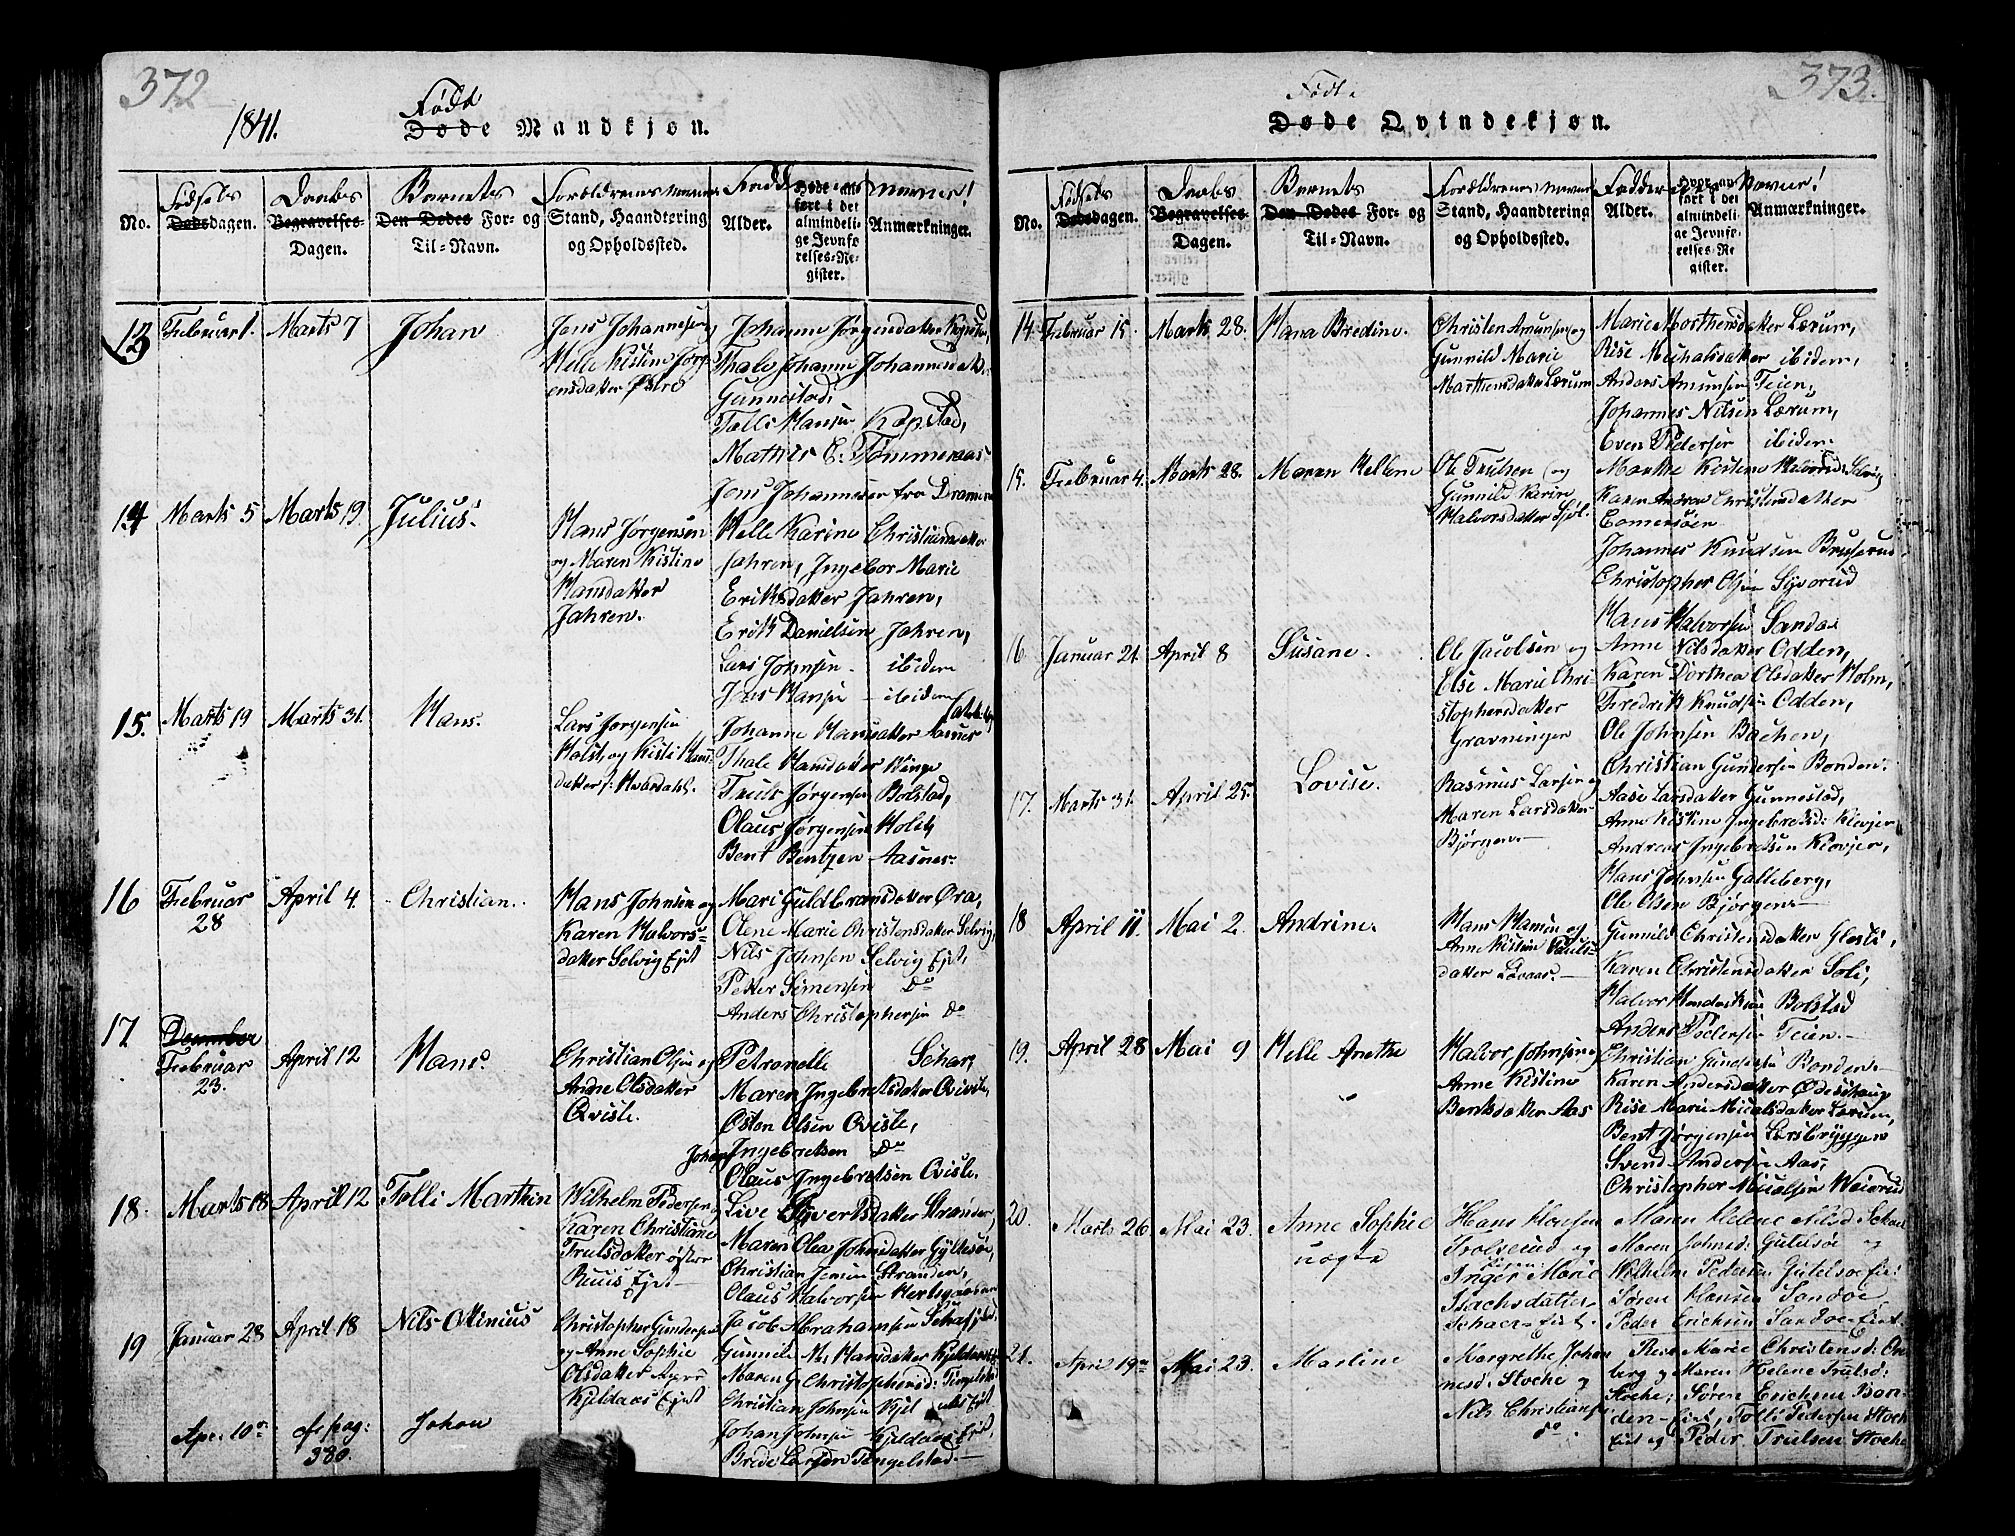 372
1841.
Fødd
Døde Mandkjøn.
No.
Fødsels
Dødsdagen.
Daabs
Begravelses-
Dagen.
Barnets
Den Dødes For- og
Til-Navn.
Forældrenes Navne
Stand, Haandtering
og Opholdssted.
Alder.
fört i det
almindeli-
ge Jevnfø-
relses-Re-
gister.
Navner!
Anmærkninger.
13
Februar 1.
Marts 7
Johan
Jens Johannesen og
Helle Kistine Jørg-
ensdatter
Johanne Jørgensdatter
Thale Johanne Johannesdat.
Gunnestad,
Tolle Hansen Kopstad,
Mathis C. Tømmeraas
Jens Johannesen fra Drammen
14
Marts 5
Marts 19
Julius
Hans Jørgensen
og Maren Kistine
Hansdatter
Jahren.
Helle Karine Christiansdatter
Jahren, Ingebor Marie
Eriksdatter Jahren,
Erik Danielsen Jahren,
Lars Johnsen ibidem
Jens Hansen ibidem
15.
Marts 19
Marts 31.
Hans.
Lars Jørgensen
Holst, og Kisti Hans-
datter
Johanne Hansdatter Aasnes
Thale Hansdatter Binge
Truls Jørgensen Bolstad,
Olaus Jørgensen Holst,
Bent Bentzen Aasnes.
16
Februar
28
April 4.
Christian.
Hans Johnsen og
Karen Halvors-
datter Selvig Ejet
Mari Guldbransdatter Øra,
Olene Marie Christensdatter Selvig,
Nils Johnsen Selvig Ejet,
Petter Simensen Do
Anders Christophersen Do
17
December
Februar
23.
April 12
Hans.
Christian Olsen og
Andrie Olsdatter
Qvisle.
Petronelle Schar,
Maren Ingebretsdatter Qvisle,
Osten Olsen Qvisle,
Johan Ingebretsen Do
Olaus Ingebretsen Qvisle.
18.
Marts 18
April 12
Tolli Marthin
Wilhelm Pedersen og
Karen Christiane
Trulsdatter østre
Ruus Ejet
Live Sivertsdatter Stranden,
Maren Olea Johnsdatter Gyltesøe,
Christian Jensen Stranden,
Olaus Halvorsen
19
Januar 28
April 18
Nils Ottinius
Christopher Gundersen
og Anne Sophie
Olsdatter
Kjeldaas Ejet
Jacob Abrahamsen
Gunnele M. Hansdatter Kjeldaas
Maren G. Christophersd: Tingelstad
Christian Johnsen Kjeldaas Ejet
Johan Johnsen Kjeldaas Ejet,
Brede Larsen Tingelstad.
Apr. 10de
cfr pag:
380.
Johan
373.
Født
Døde Qvindekjøn.
No.
Fødsels
Dødsdagen.
Daabs
Begravelses-
Dagen.
Barnets
Den Dødes For- og
Til-Navn.
Forældrenes Navne
Stand, Haandtering
og Opholdssted.
Alder.
fört i det
almindeli-
ge Jevnfø-
relses-Re-
gister.
Navner!
Anmærkninger.
14.
Februar 15.
Marts 28.
Hana Bredine.
Christen Amunsen og
Gunnild Marie
Marthensdatter Lærum
Marie Morthensdatter Lærum,
Rise Michalsdatter ibidem,
Anders Amunsen Teien,
Johannes Nilsen Lærum,
Even Pedersen ibidem
15.
Februar 4.
Marts 28.
Maren Hellene
Ole Trulsen og
Gunnild Karine
Halvorsdatter
Marthe Kistine Halvorsd: Selvig
Karen Andrea Christensdatter
Johannes Knudsen Bruserud
Christopher Olsen
Hans Halvorsen Sandøe
16.
Januar 21.
April 8
Susane.
Ole Jacobsen og
Else Marie Chri-
stophersdatter
Gravningen
Anne Nilsdatter Odden,
Karen Dorthea Olsdatter Holm,
Fredrik Knudsen Odden,
Ole Johnsen Bachen,
Christian Gundersen Bonden.
17.
Marts 31.
April 25.
Lovise.
Rasmus Larsen og
Maren Larsdatter
Bjørgen
Aase Larsdatter Gunnestad,
Anne Kistine Ingebretsd: Klovjer,
Andreas Ingebretsen Klovjer,
Hans Johnsen Galleberg,
Ole Olsen Bjørgen
18
April 11.
Mai 2.
Andrine.
Hans Hansen og
Anne Kistine Pauls-
datter Løvaas.
Gunnild Christensdatter
Karen Christensdatter Soli,
Halvor Hendriksen Bolstad
Anders Pedersen Teien.
19.
April 28
Mai 9
Helle Anethe
Halvor Johnsen og
Anne Kistine
Bentsdatter Aas
Christian Gundersen Bonden.
Karen Andersdatter Ødeschaug
Rise Marie Micalsdatter Lærum,
Bent Jørgensen Larsbryggen
Svend Andersen Aas,
Christopher Micalsen Weierud
20.
Marts 26
Mai 23.
Anne Sophie
uægte
Hans Hansen
Trolserud og
Pigen
Inger Marie
Isachsdatter
Schaer-Eiet.
Maren Helene Nilsd Schaer
Maren Johnsd: Gutelsøe og
Wilhelm Pedersen Gutelsøe Eie:
Søren Hansen Sandøe
Peder Erichsen Sandøe-Eiet.
21.
April 19de
Mai 23.
Martine
Margrethe Johan-
nesd. Stoche og
Nils Christiansen
do
Marie Christensd:
berg og Maren Helene Trulsd:
Stoche; Søren Erichsen Bon-
den-Eiet, Tolli Pedersen Stoche
Eiet og Peder Trulsen Stoche